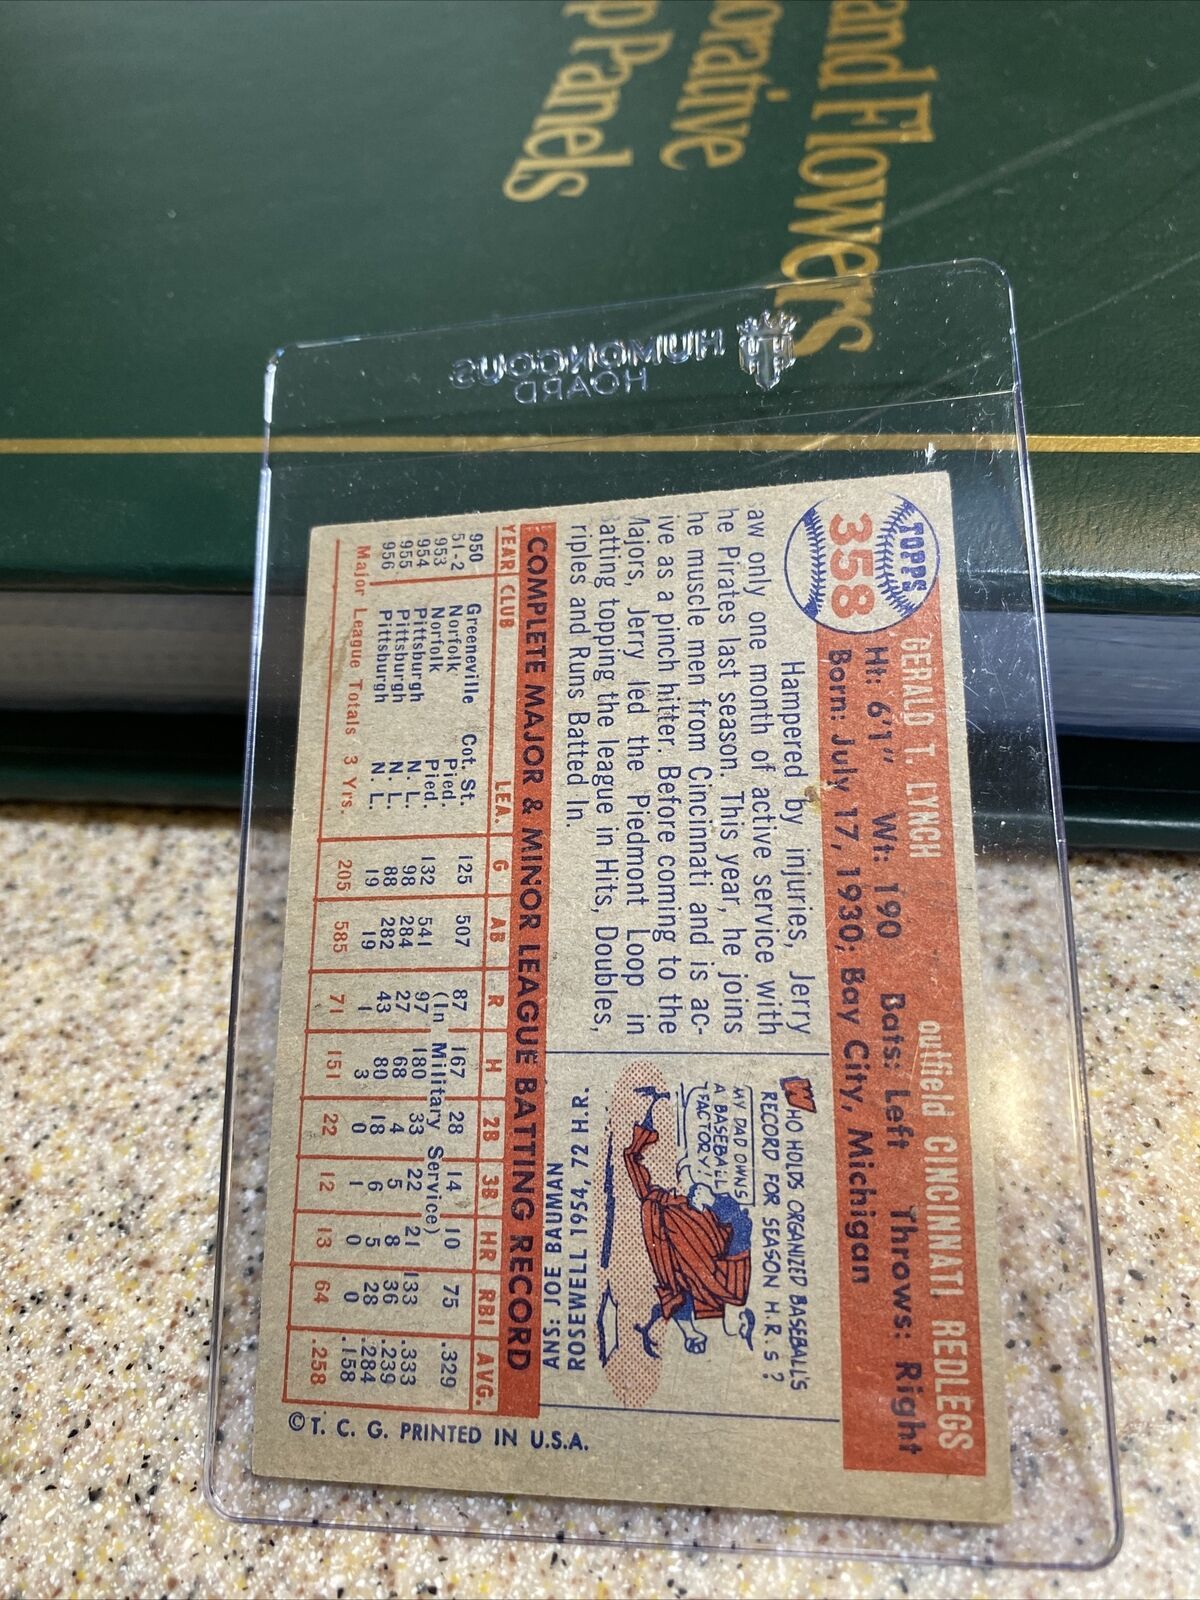 and Flowers
orative
p Panels
HUMONGOUS
HOARD
TOPPS
358
GERALD T. LYNCH outfield CINCINNATI REDLEGS
Ht: 6'1" Wt: 190 Bats: Left Throws: Right
Born: July 17, 1930; Bay City, Michigan
Hampered by injuries, Jerry
aw only one month of active service with
he Pirates last season. This year, he joins
he muscle men from Cincinnati and is ac-
ive as a pinch hitter. Before coming to the
Majors, Jerry led the Piedmont Loop in
atting topping the league in Hits, Doubles,
riples and Runs Batted In.
WHO HOLDS ORGANIZED BASEBALL'S
RECORD FOR SEASON H.R.S?
MY DAD OWNS
A BASEBALL
FACTORY!
ANS: JOE BAUMAN
ROSEWELL 1954, 72 H.R.
COMPLETE MAJOR & MINOR LEAGUE BATTING RECORD
YEAR CLUB LEA. G AB R H 2B 3B HR RBI AVG.
950 Greeneville Cot. St. 125 507 87 167 28 14 10 75 .329
51-2 Norfolk Pied. (In Military Service)
953 Norfolk Pied. 132 541 97 180 33 22 21 133 .333
954 Pittsburgh N. L. 98 284 27 68 4 5 8 36 .239
955 Pittsburgh N. L. 88 282 43 80 18 6 5 28 .284
956 Pittsburgh N. L. 19 19 1 3 0 1 0 0 .158
Major League Totals 3 Yrs. 205 585 71 151 22 12 13 64 .258
© T. C. G. PRINTED IN U.S.A.